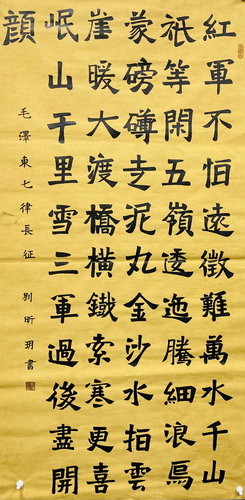 紅軍不怕遠徵難萬水千山
祇等閑五嶺逶迤騰細浪烏
蒙磅礴走泥丸金沙水拍雲
崖暖大渡橋橫鐵索寒更喜
岷山千里雪三軍過後盡開
顔
毛澤東七律長征 劉昕玥書